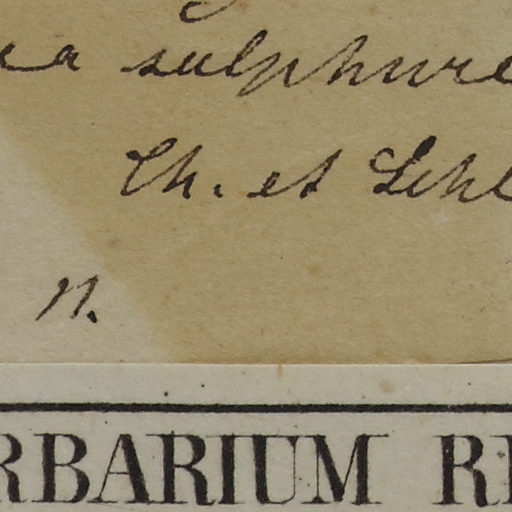 na sulphure
Ch. et Schl
n.
RBARIUM RE